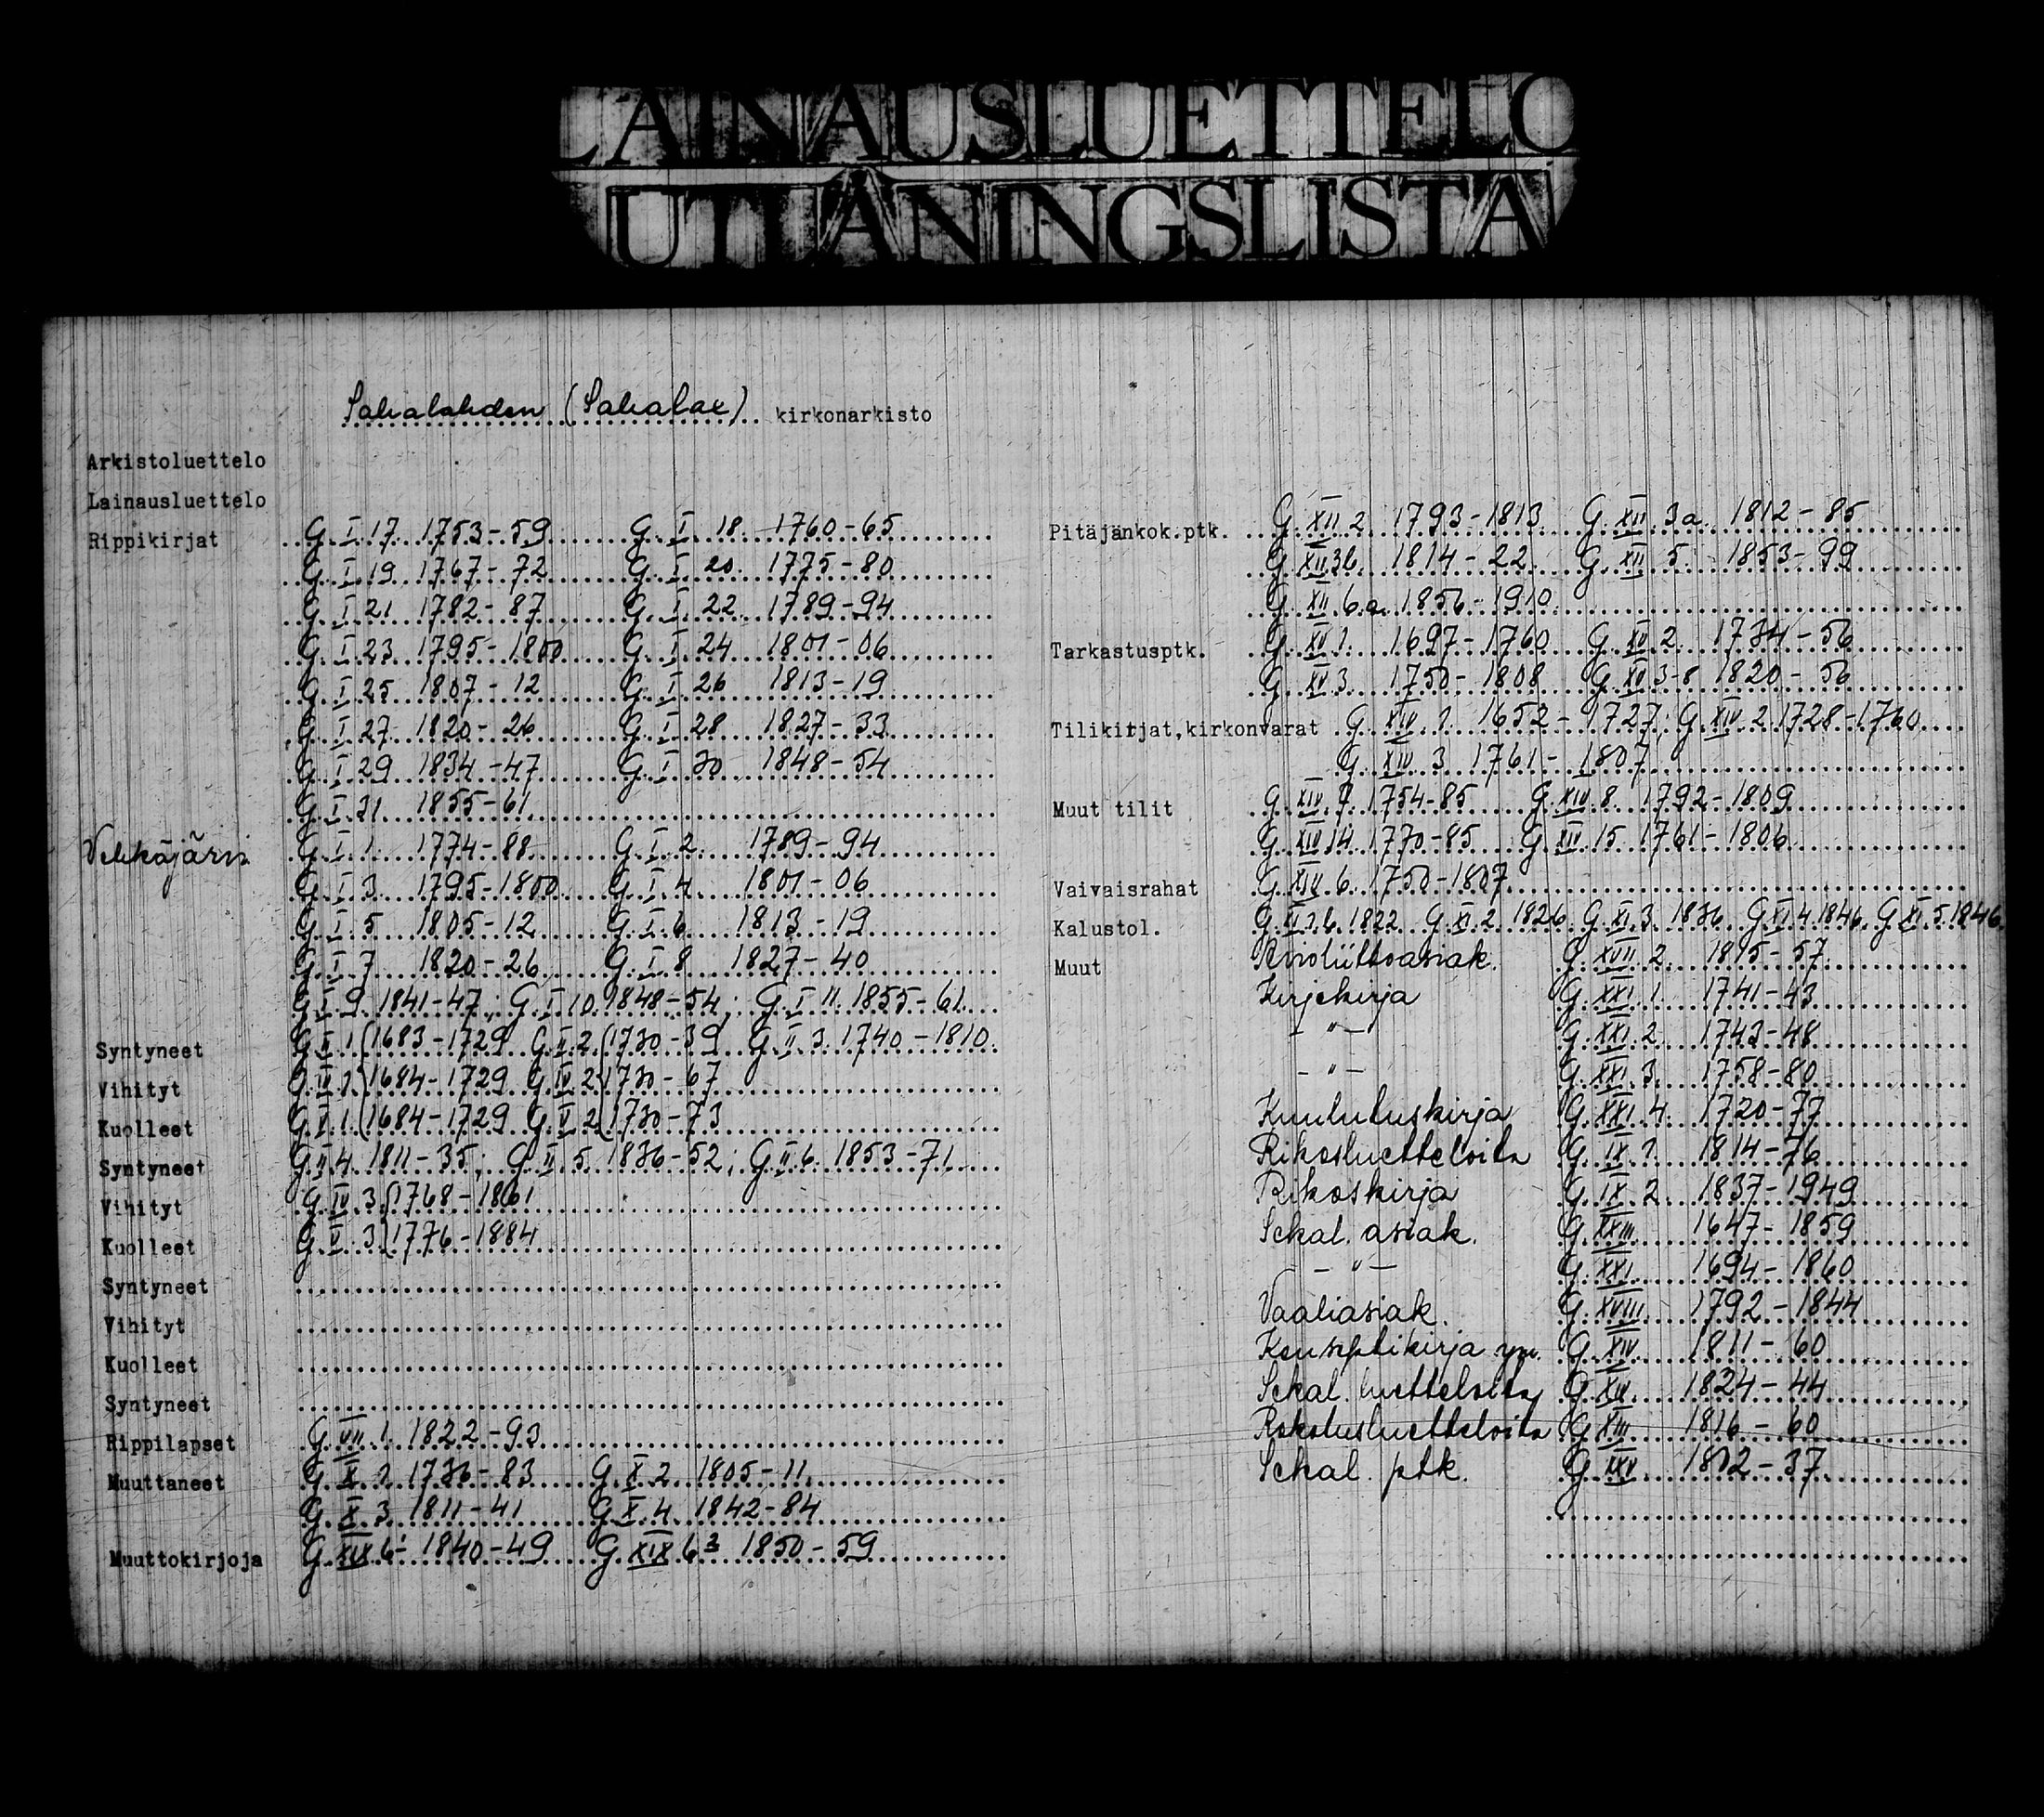 LAINAUSLUETTELO
UTLÅNINGSLISTA
Sahalahden (Sahalax) kirkonarkisto
Arkistoluettelo
Lainausluettelo
Rippikirjat G I 17 1753-59 G I 18 1760-65
G I 19 1767-72 G I 20 1775-80
G I 21 1782-87 G I 22 1789-94
G I 23 1795-1800 G I 24 1801-06
G I 25 1807-12 G I 26 1813-19
G I 27 1820-26 G I 28 1827-33
G I 29 1834-47 G I 30 1848-54
G I 31 1855-61
G I 1 1774-88 G I 2 1789-94
G I 3 1795-1800 G I 4 1801-06
G I 5 1805-12 G I 6 1813-19
G I 7 1820-26 G I 8 1827-40
G I 9 1841-47; G I 10 1848-54; G I 11 1855-61
Syntyneet G II 1 (1683-1729 G II 2 (1730-39 G II 3 1740-1810
Vihityt G IV 1 (1684-1729 G IV 2 (1730-67
Kuolleet G V 1 (1684-1729 G V 2 (1730-73
Syntyneet G II 4 1811-35; G II 5 1836-52; G II 6 1853-71
Vihityt G IV 3 (1768-1861
Kuolleet G V 3 (1776-1884
Syntyneet
Vihityt
Kuolleet
Syntyneet
Rippilapset G VII 1 1822-93
Muuttaneet G X 1 1736-83 G X 2 1805-11
G X 3 1811-41 G X 4 1842-84
Muuttokirjoja G XIX 1840-49 G XIX 6³ 1850-59
Pitäjänkok.ptk. G XII 2 1793-1813 G XII 3a 1812-85
G XII 3b 1814-22 G XII 5 1853-99
G XII 6a 1856-1910
Tarkastusptk. G XV 1 1697-1760 G XV 2 1734-56
G XV 3 1750-1808 G XV 3-8 1820-56
Tilikirjat,kirkonvarat G XIV 1 1652-1727; G XIV 2 1728-1760
G XIV 3 1761-1807
Muut tilit G XIV 7 1754-85 G XIV 8 1792-1809
G XIV 14 1770-85 G XIV 15 1761-1806
Vaivaisrahat G XIV 6 1750-1807
Kalustol. G XI 1b 1822 G XI 2 1826 G XI 3 1836 G XI 4 1846 G XI 5 1846
Muut Avioliittoasiak. G XVII 2 1815-57
Kirjekirja G XXI 1 1741-43
-"- G XXI 2 1743-48
-"- G XXI 3 1758-80
Kuulutuskirja G XXI 4 1720-77
Rikosluetteloita G IX 1 1814-76
Rikoskirja G IX 2 1837-1949
Sekal. asiak. G XXIII 1647-1859
-"- G XXI 1694-1860
Vaaliasiak. G XVIII 1792-1844
Konseptikirja ym. G XIV 1811-60
Sekal. luetteloita G XV 1824-44
Rokotusluetteloita G XIII 1816-60
Sekal. ptk. G 1802-37